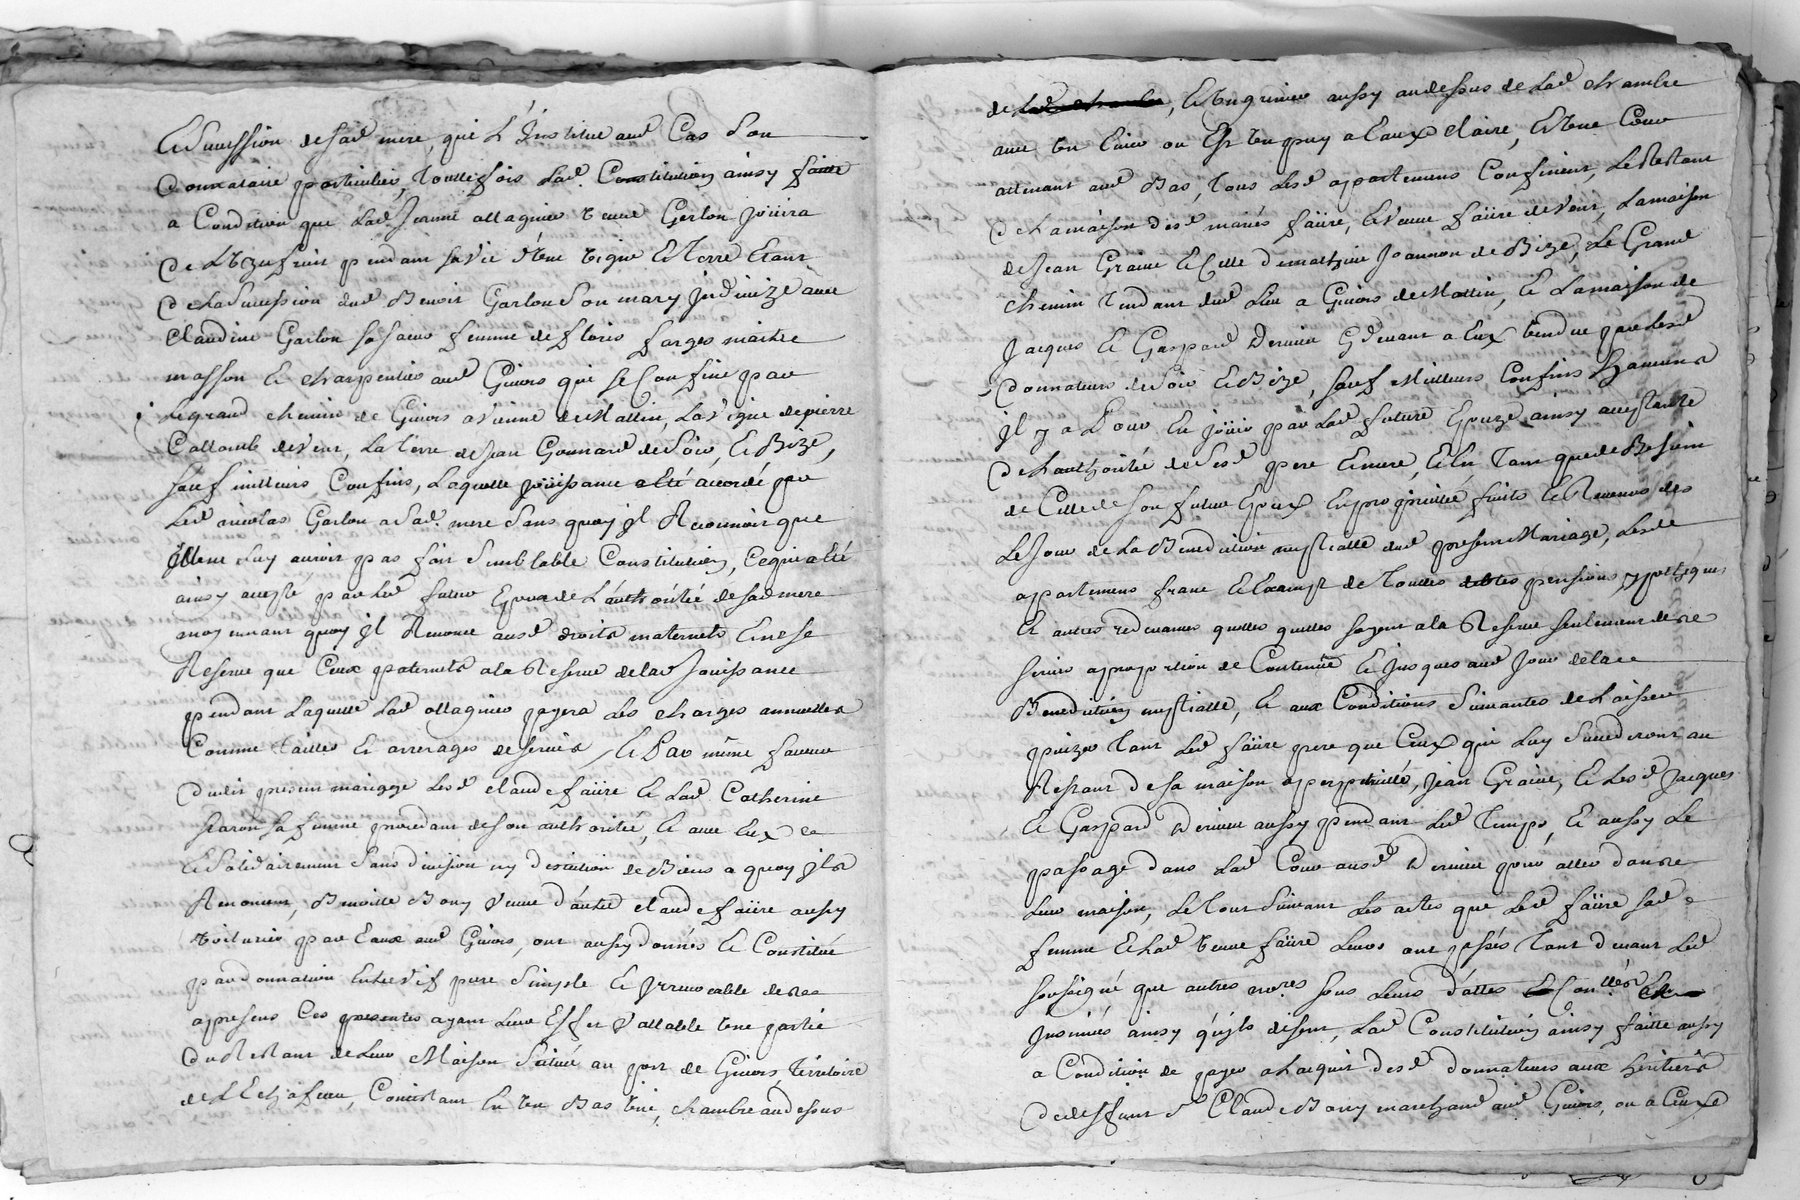 et Succession de sad mere, qui L'Institue aud Cas Son
Donnataire particulier, Touttefois Lad. Constitution ainsy faitte
a Condition que Lad Jeanne attagnier veuve Garlon Joüira
De L'Uzufruit pendant sa vie d'Une vigne et Terre Etant
De la Succession dud Benoit Garlon Son mary Jndivizé avec
Claudine Garlon sa Sœur femme de floris farges maitre
masson et charpentier aud Givors qui se Confine par
Le grand chemin de Givors a vienne de Mattin, La vigne de pierre
Collomb de vent, La Terre de Jean Gonnard de Soir, et Bize,
sauf meilleurs Confins, Laquelle joüissance a Eté accordé par
Led nicolas Garlon a Sad. mere Sans quoy jl Reconnoit que
Elle ne Luy auroit pas fait Semblable Constitution, Ce qui a Eté
ainsy accepté par Led futur Epoux de L'authorité de sad mere
moyennant quoy jl Renonce ausd droits maternels Et ne se
Reserve que Ceux paternels a la Reserve de lad Jouissance
pendant Laquelle Lad attagnier payera Les charges annuelles
Comme Tailles et arrerages de servis, et Par même faveur
Dudit present mariage Led claude faüre et Lad Catherine
sa femme procedant de son authorité, et avec Eux
et Solidairement Sans division ny discution de Biens a quoy jls
Renoncent, Benoitte Bony veuve d'autre claude faüre aussy
voiturier par Eaux aud Givors, ont aussy donnés et Constitué
par donnation Entre vif pure Simple et Irrevocable des
apresent Ces presentes ayant Leur Effet vallable Une partie
Du Restant de Leur Maison Scitué au port de Givors Territoire
de, Consistant En Un Bas Uni, chambre au dessus
de Lad chambre, Et Un grenier aussy au dessus de Lad chambre
avec Un Evier ou Est Un puy a Eaux claire, Et Une Cour
attenant aud Bas, Tous Lesd appartemens Confinent, Le Restant
De La maison desd mariés faüre, et veuve faüre de vent, La maison
de Jean Graine et Celle de mathieu Joannon de Bize, Le Grand
chemin Tendant dud Lieu a Givors de Mattin, et La maison de
Jacques et Gaspard Dervieu Cydevant a Eux vendue par Lesd
Donnateurs de Soir et Bize, sauf Meilleurs Confins
jl y a Pour En joüir par Lad future Epouze ainsy acceptante
De L'authorité de Sesd pere et mere, et En Tant que de Besoin
de Celle de son futur Epoux En proprieté fruits et Revenus dès
Le jour de La Benediction nuptialle dud present Mariage, Lesd
appartemens franc et Exempt de Toutes dettes pensions, ypotheques
et autres redevances quelles quelles soyent a la Reserve seulement de
servir a proportion de Contenüe et Jusques aud Jour de la
Benediction nuptialle, et aux Conditions Suivantes de Laisser
puizer Tant Led faüre pere que Ceux qui Luy Succederont au
Restant de sa maison a perpetuité, Jean Graine, et Lesd Jacques
et Gaspard Dervieu aussy pendant Led Temps, et aussy Le
passage dans Lad Cour ausd Dervieu pour aller dans
Leur maison, Le Tout Suivant Les actes que Led faüre sad
femme et Lad veuve faüre Leurs ont passés Tant devant Led
soussigné que autres nores sous Leurs dattes Contllés et
Jnsinués ainsy qu'jls disent, Lad Constitution ainsy faitte aussy
a Condition de payer a L'acquit desd donnateurs aux heritiers
De deffunt Sr Claude Bony marchand aud Givors, ou a Ceux